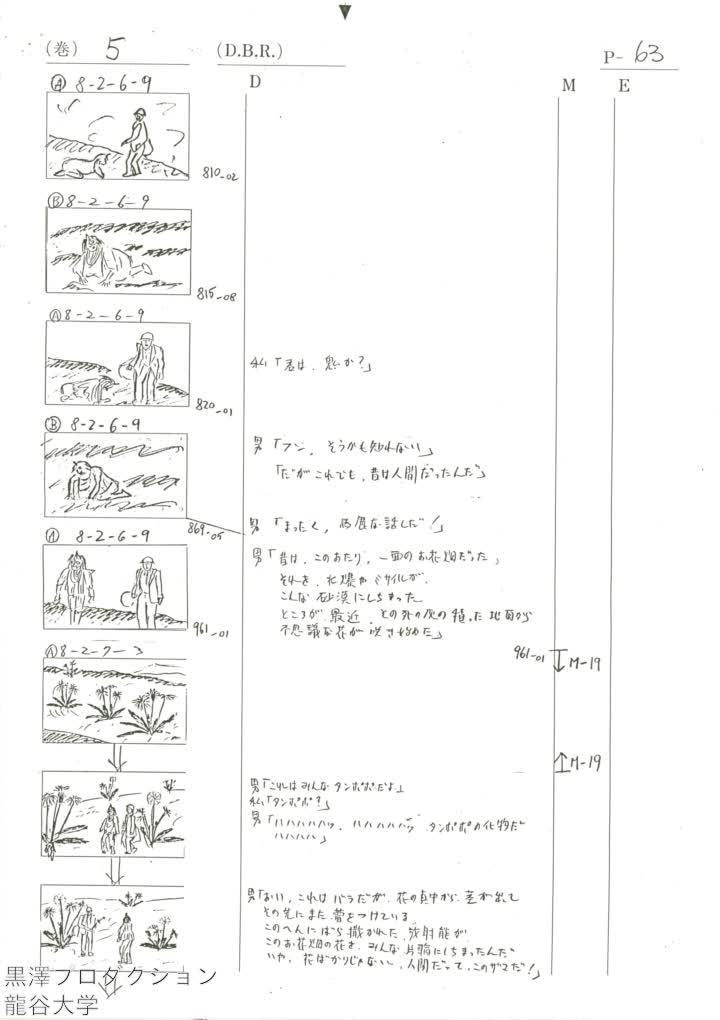 (巻) 5 (D.B.R.) P-63
D M E
Ⓐ 8-2-6-9
810-02
Ⓑ 8-2-6-9
815-08
Ⓐ 8-2-6-9
820-01
私「君は、鬼か?」
Ⓑ 8-2-6-9
869-05
男「フン、そうかも知れない」
「だがこれでも、昔は人間だったんだ」
男「まったく、馬鹿な話しだ!」
Ⓐ 8-2-6-9
961-01
男「昔は、このあたり、一面のお花畑だった、
それを、水爆やミサイルが、
こんな砂漠にしちまった
ところが、最近、その死の灰の積った地面から
不思議な花が咲き始めた」
Ⓐ 8-2-7-3
961-01 M-19
M-19
男「これはみんなタンポポだよ」
私「タンポポ?」
男「ハハハハハッ、ハハハハハッ タンポポの化物だ
ハハハハ」
男「おい、これはバラだが、花の真中から、茎が出て
その先にまた、蕾をつけている
このへんにばら撒かれた、放射能が、
このお花畑の花を、みんな片輪にしちまったんだ
いや、花ばかりじゃないし、人間だって、このザマだ!」
黒澤プロダクション
龍谷大学